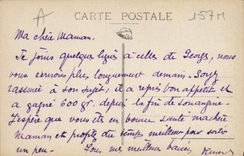 A
CARTE POSTALE
157M
Ma chère Maman.
Je joins quelques lignes à celle de Georges, nous
vous verrons plus longuement demain. Soyez
rassurée à son sujet; il a repris bon appétit et il
a gagné 600 gr. depuis la fin de
J'espère que vous êtes en bonne santé ma chère
Maman et profitez du temps meilleur pour sortir
un peu. Tous nos meilleurs baisers,